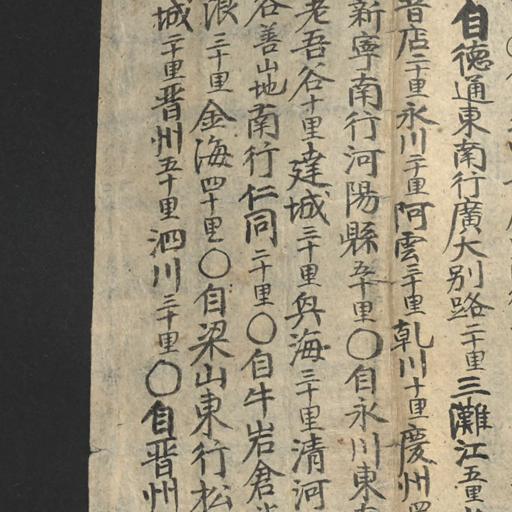 自德通東南行廣大別路二十里三灘江五里
昔店二十里永川二十里阿雲三十里乹川十里慶州
新寧南行河陽縣五十里○自永川東
老吾谷十里達城三十里興海三十里清河
谷善山地南行仁同二十里○自牛岩倉
浪三十里金海四十里○自梁山東行松
城二十里晋州五十里泗川三十里○自晋州